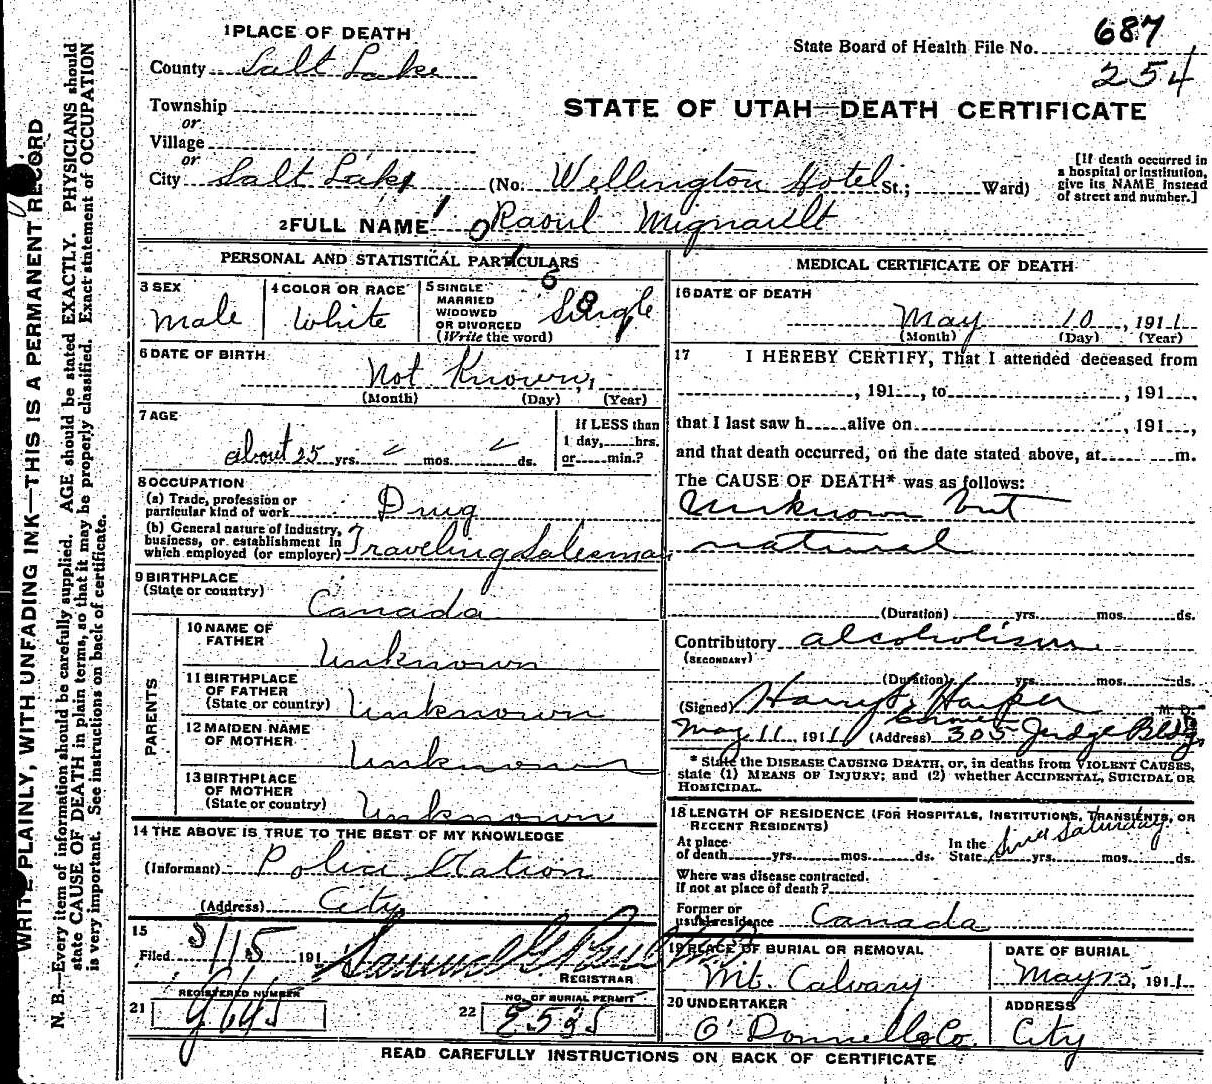 WRITE PLAINLY, WITH UNFADING INK—THIS IS A PERMANENT RECORD
N. B.—Every item of information should be carefully supplied. AGE should be stated EXACTLY. PHYSICIANS should
state CAUSE OF DEATH in plain terms, so that it may be properly classified. Exact statement of OCCUPATION
is very important. See instructions on back of certificate.
1 PLACE OF DEATH
County Salt Lake
Township
or
Village
or
City Salt Lake (No. Wellington Hotel St.; Ward)
State Board of Health File No. 687
254
STATE OF UTAH—DEATH CERTIFICATE
[If death occurred in
a hospital or institution,
give its NAME instead
of street and number.]
2 FULL NAME Raoul Mignault
PERSONAL AND STATISTICAL PARTICULARS
3 SEX
Male
4 COLOR OR RACE
White
5 SINGLE
MARRIED
WIDOWED
OR DIVORCED
(Write the word)
Single
6 DATE OF BIRTH
Not Known
(Month) (Day) (Year)
7 AGE
about 25 yrs. mos. ds.
If LESS than
1 day, hrs.
or min.?
8 OCCUPATION
(a) Trade, profession or
particular kind of work Drug
(b) General nature of industry,
business, or establishment in
which employed (or employer) Traveling Salesman
9 BIRTHPLACE
(State or country)
Canada
PARENTS
10 NAME OF
FATHER
Unknown
11 BIRTHPLACE
OF FATHER
(State or country) Unknown
12 MAIDEN NAME
OF MOTHER
Unknown
13 BIRTHPLACE
OF MOTHER
(State or country) Unknown
14 THE ABOVE IS TRUE TO THE BEST OF MY KNOWLEDGE
(Informant) Police Station
(Address) City
15
Filed 5/15 191
REGISTRAR
21 REGISTERED NUMBER
22 NO. OF BURIAL PERMIT
MEDICAL CERTIFICATE OF DEATH
16 DATE OF DEATH
May 10, 1911
(Month) (Day) (Year)
17 I HEREBY CERTIFY, That I attended deceased from
, 191, to , 191,
that I last saw h alive on , 191,
and that death occurred, on the date stated above, at m.
The CAUSE OF DEATH* was as follows:
Unknown but
natural
(Duration) yrs. mos. ds.
Contributory alcoholism
(SECONDARY)
(Duration) yrs. mos. ds.
(Signed) Harry S. Harper M. D.
May 11 1911 (Address) 305 Judge Bldg
* State the DISEASE CAUSING DEATH, or, in deaths from VIOLENT CAUSES,
state (1) MEANS OF INJURY; and (2) whether ACCIDENTAL, SUICIDAL OR
HOMICIDAL.
18 LENGTH OF RESIDENCE (FOR HOSPITALS, INSTITUTIONS, TRANSIENTS, OR
RECENT RESIDENTS)
At place
of death yrs. mos. ds.
In the
State since Saturday yrs. mos. ds.
Where was disease contracted.
If not at place of death?
Former or
usual residence Canada
19 PLACE OF BURIAL OR REMOVAL
Mt. Calvary
DATE OF BURIAL
May 1911
20 UNDERTAKER
O'Donnell & Co.
ADDRESS
City
READ CAREFULLY INSTRUCTIONS ON BACK OF CERTIFICATE